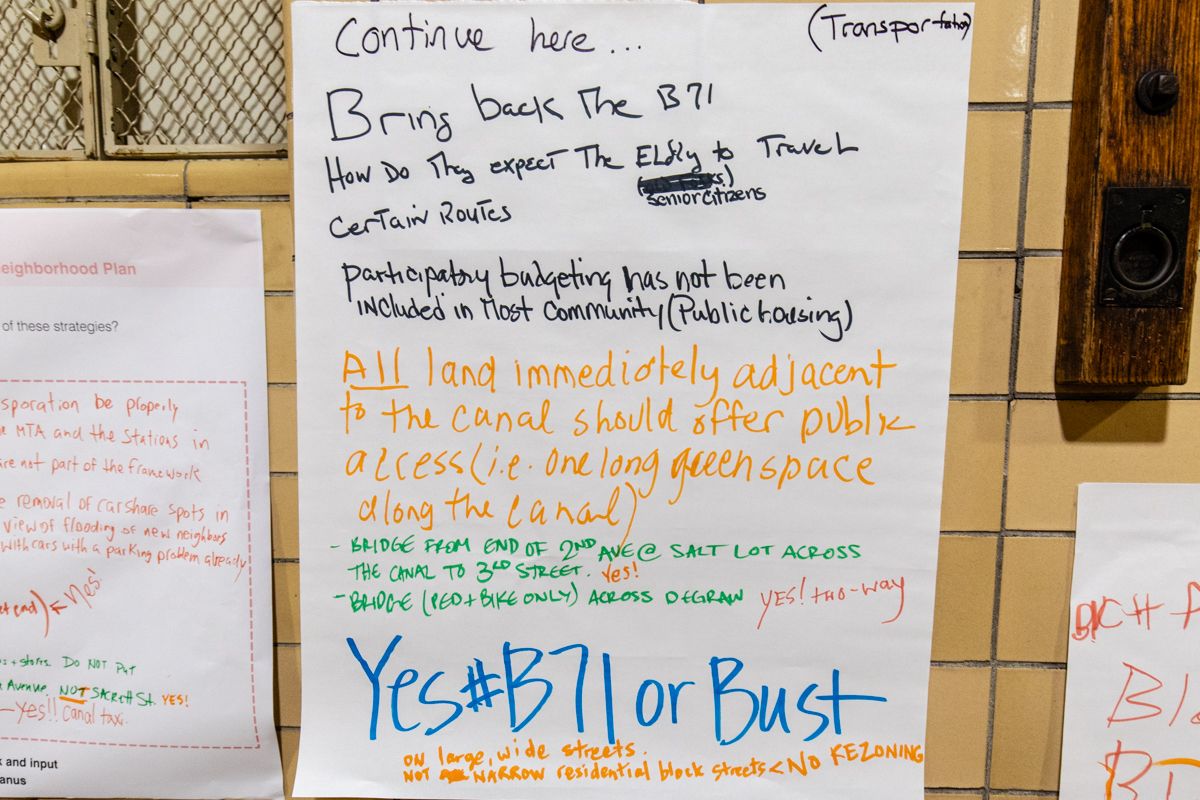 Continue here...
(Transportation)
Bring back The B71
How Do They expect The ELdly to Travel
senior citizens
Certain Routes
participatory budgeting has not been
included in Most Community (Public housing)
All land immediately adjacent
to the canal should offer public
access (i.e. one long green space
along the canal)
- BRIDGE FROM END OF 2ND AVE @ SALT LOT ACROSS
THE CANAL TO 3RD STREET. Yes!
- BRIDGE (PED + BIKE ONLY) ACROSS DEGRAW YES! two-way
Yes #B71 or Bust
on large, wide streets.
NOT NARROW residential block streets < NO REZONING
eighborhood Plan
of these strategies?
sporation be properly
MTA and the stations in
are not part of the framework
removal of carshare spots in
view of flooding of new neighbors
with cars with a parking problem already
end) Yes!
+ stores. DO NOT PUT
Avenue. NOT SACKett St. YES!
- Yes!! Canal taxi.
and input
anus